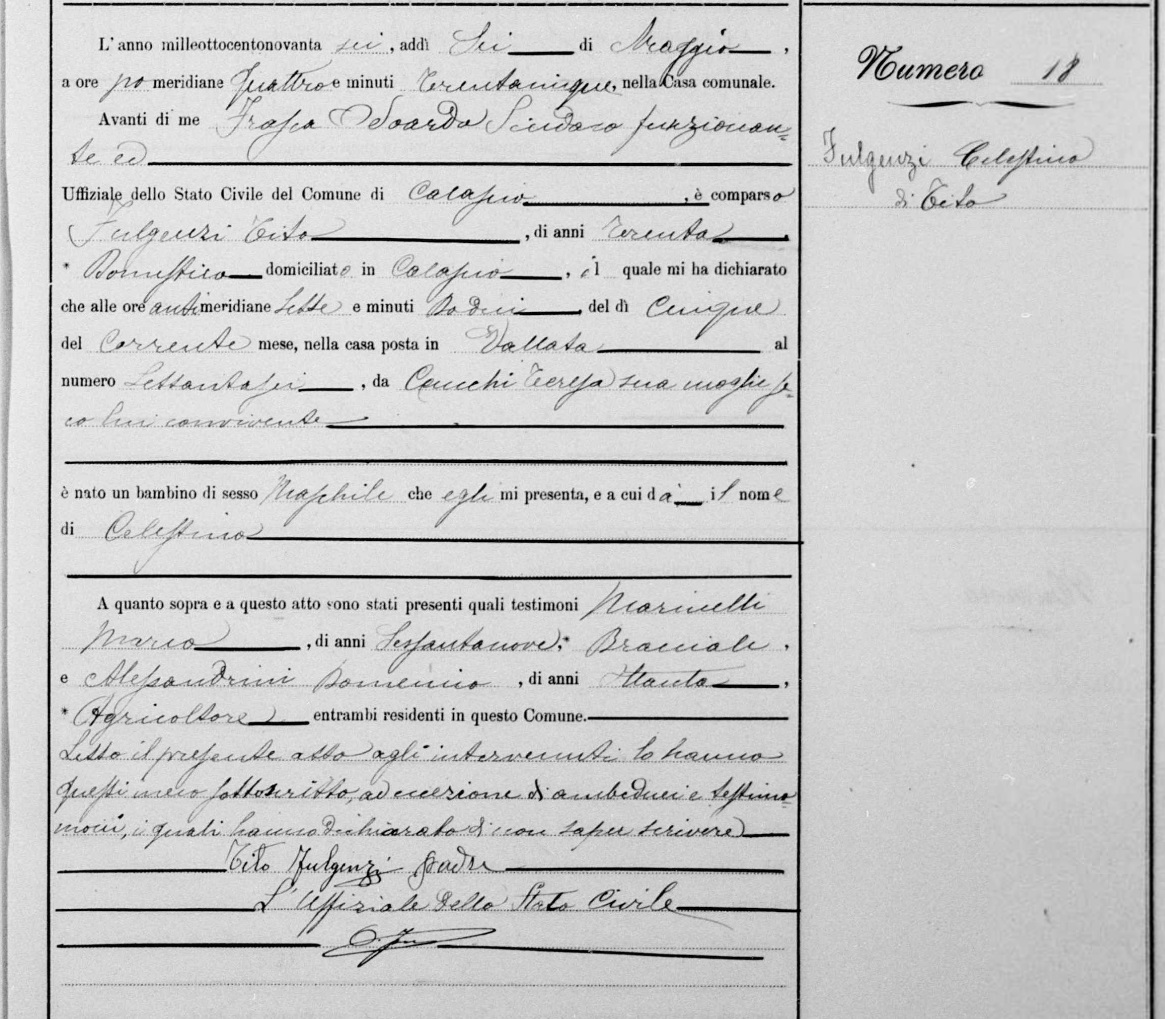 L'anno milleottocentonovanta sei, addì Sei di Maggio,
a ore po meridiane quattro e minuti trentacinque, nella Casa comunale.
Avanti di me Frasca Odoardo Sindaco funzionan-
te ed
Uffiziale dello Stato Civile del Comune di Calascio, è comparso
Fulgenzi Tito, di anni trenta,
* Domestico domiciliato in Calascio, il quale mi ha dichiarato
che alle ore antimeridiane sette e minuti dodici del dì cinque
del corrente mese, nella casa posta in Vallata al
numero sessantasei, da Teresa sua moglie se-
co lui convivente
è nato un bambino di sesso Maschile che egli mi presenta, e a cui dà il nome
di Celestino
A quanto sopra e a questo atto sono stati presenti quali testimoni Marinelli
Marco, di anni sessantanove, * Bracciale,
e Alessandrini Domenico, di anni ottanta,
* Agricoltore entrambi residenti in questo Comune.
Letto il presente atto agli intervenuti lo hanno
questi meco sottoscritto, ad eccezione di ambedue i testimo-
moni, i quali hanno dichiarato di non saper scrivere
Tito Fulgenzi padre
L'Uffiziale dello Stato Civile
Numero 18
Fulgenzi Celestino
di Tito